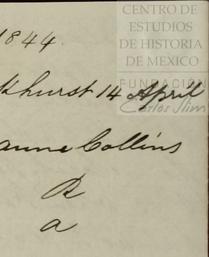 CENTRO DE
ESTUDIOS
DE HISTORIA
DE MEXICO
FUNDACIÓN
Carlos Slim
1844.
khurst 14 April
anne Collins
R
a